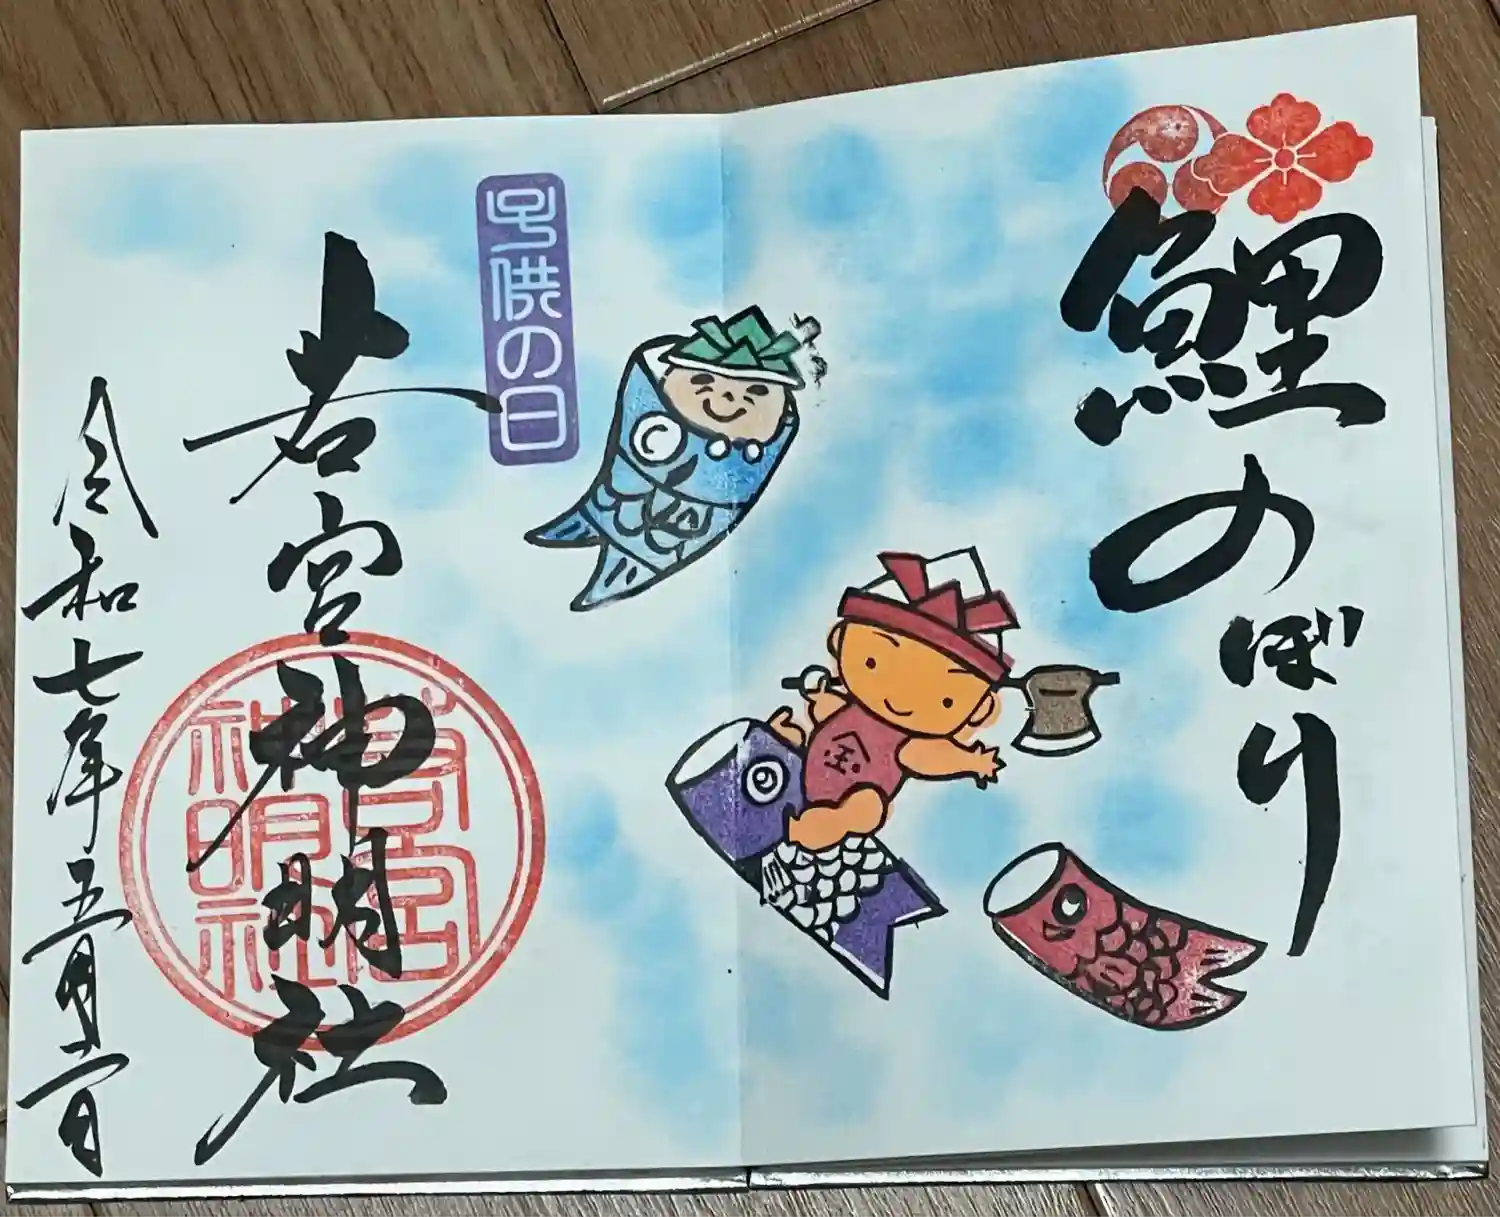 鯉のぼり
子供の日
若宮神明社
若宮
神明社
令和七年五月一日